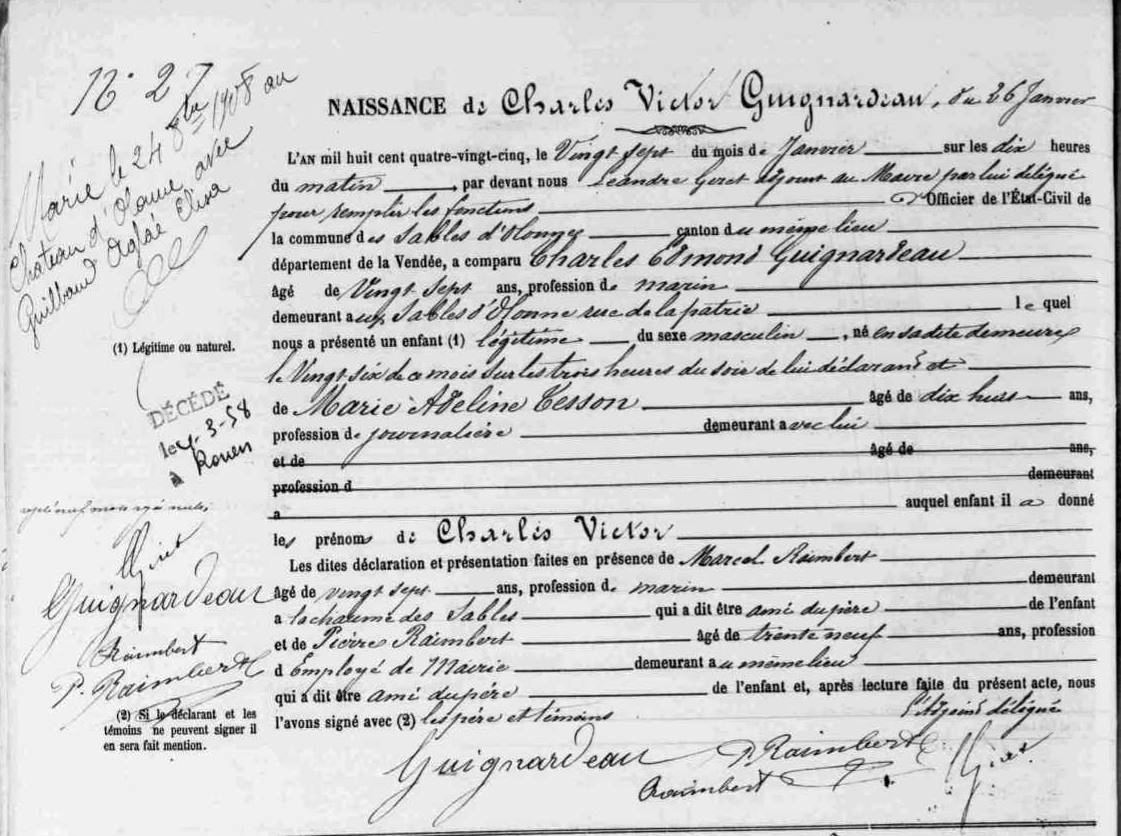 N° 27
Marié le 24 8bre 1908 au
Chateau d'Olonne avec
Guilbaud Aglaé Elisa
(1) Légitime ou naturel.
DÉCÉDÉ
le 4-3-58
à Rouen
Guignardeau
Raimbert
P. Raimbert
(2) Si le déclarant et les
témoins ne peuvent signer il
en sera fait mention.
NAISSANCE de Charles Victor Guignardeau, du 26 Janvier
L'AN mil huit cent quatre-vingt-cinq, le Vingt sept du mois de Janvier sur les dix heures
du matin, par devant nous Léandre adjoint au Maire par lui délégué
pour remplir les fonctions d'Officier de l'État-Civil de
la commune des Sables d'Olonne canton du même lieu
département de la Vendée, a comparu Charles Edmond Guignardeau
âgé de Vingt Sept ans, profession de marin
demeurant aux Sables d'Olonne rue de la patrie lequel
nous a présenté un enfant (1) légitime du sexe masculin, né en sadite demeure
le Vingt six de ce mois sur les trois heures du soir de lui déclarant et
de Marie Adeline Tesson âgé de dix huit ans,
profession de journalière demeurant avec lui
et de âgé de ans,
profession d demeurant
a auquel enfant il a donné
les prénoms de Charles Victor
Les dites déclaration et présentation faites en présence de Marcel Raimbert
âgé de vingt sept ans, profession de marin demeurant
a la chaume des Sables qui a dit être ami du père de l'enfant
et de Pierre Raimbert âgé de trente neuf ans, profession
d Employé de Mairie demeurant au même lieu
qui a dit être ami du père de l'enfant et, après lecture faite du présent acte, nous
l'avons signé avec (2) les père et témoins l'Adjoint délégué
Guignardeau P. Raimbert
Raimbert